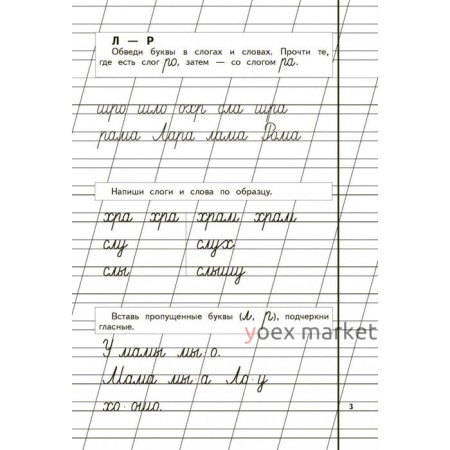 Л — Р
Обведи буквы в слогах и словах. Прочти те,
где есть слог ро, затем — со слогом ра.
шро шло охр сла шра
рама Лара лама Рома
Напиши слоги и слова по образцу.
хра хра храм храм
слу слух
слы слышу
Вставь пропущенные буквы (л, р), подчеркни
гласные.
yoex market
У мамы мы о.
Мама мы а Ла у
хо ошо.
3